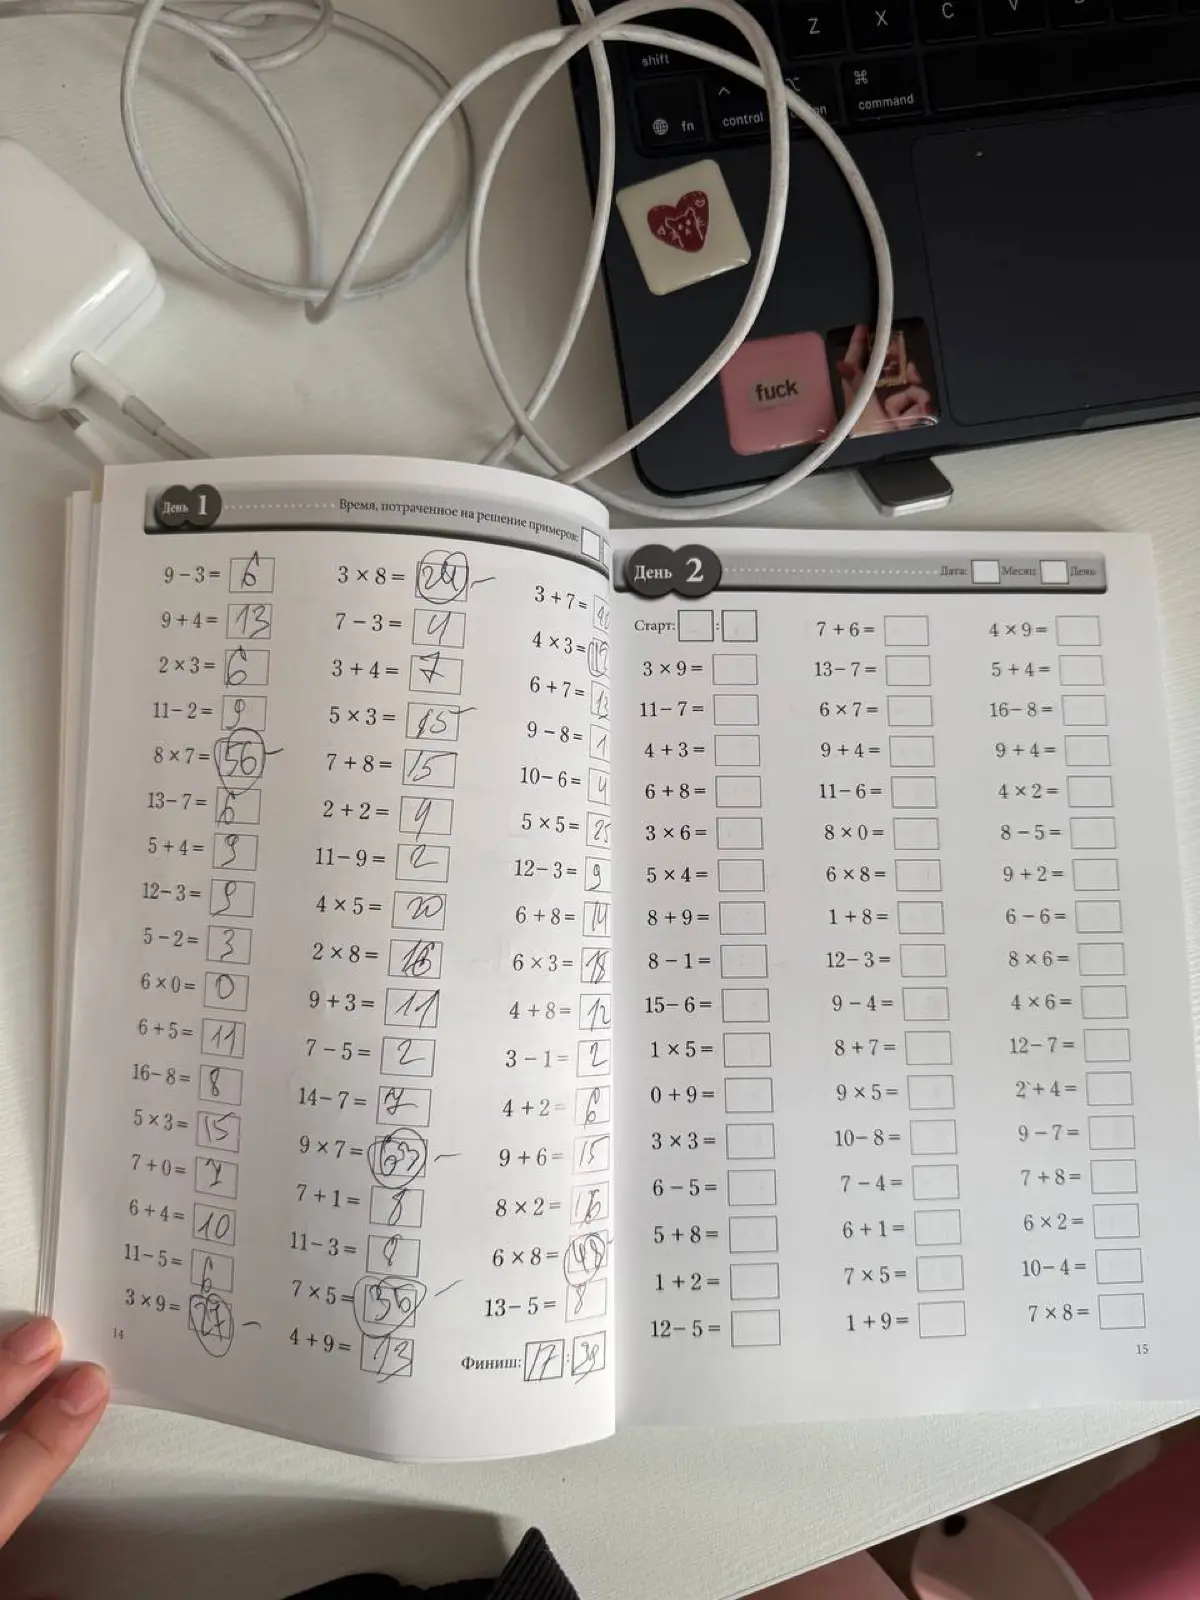 Z X C V
shift
fn
control
⌘
command
fuck
День 1
Время, потраченное на решение примеров:
9 − 3 = 6
9 + 4 = 13
2 × 3 = 6
11 − 2 = 9
8 × 7 = 56
13 − 7 = 6
5 + 4 = 9
12 − 3 = 9
5 − 2 = 3
6 × 0 = 0
6 + 5 = 11
16 − 8 = 8
5 × 3 = 15
7 + 0 = 7
6 + 4 = 10
11 − 5 = 6
3 × 9 = 27
14
3 × 8 = 24
7 − 3 = 4
3 + 4 = 7
5 × 3 = 15
7 + 8 = 15
2 + 2 = 4
11 − 9 = 2
4 × 5 = 20
2 × 8 = 16
9 + 3 = 11
7 − 5 = 2
14 − 7 = 7
9 × 7 = 63
7 + 1 = 8
11 − 3 = 8
7 × 5 =
4 + 9 = 13
3 + 7 = 10
4 × 3 = 12
6 + 7 = 13
9 − 8 = 1
10 − 6 = 4
5 × 5 = 25
12 − 3 = 9
6 + 8 = 14
6 × 3 = 18
4 + 8 = 12
3 − 1 = 2
4 + 2 = 6
9 + 6 = 15
8 × 2 = 16
6 × 8 = 48
13 − 5 = 8
Финиш: 17 : 39
День 2
Дата: Месяц День
Старт: :
3 × 9 =
11 − 7 =
4 + 3 =
6 + 8 =
3 × 6 =
5 × 4 =
8 + 9 =
8 − 1 =
15 − 6 =
1 × 5 =
0 + 9 =
3 × 3 =
6 − 5 =
5 + 8 =
1 + 2 =
12 − 5 =
7 + 6 =
13 − 7 =
6 × 7 =
9 + 4 =
11 − 6 =
8 × 0 =
6 × 8 =
1 + 8 =
12 − 3 =
9 − 4 =
8 + 7 =
9 × 5 =
10 − 8 =
7 − 4 =
6 + 1 =
7 × 5 =
1 + 9 =
4 × 9 =
5 + 4 =
16 − 8 =
9 + 4 =
4 × 2 =
8 − 5 =
9 + 2 =
6 − 6 =
8 × 6 =
4 × 6 =
12 − 7 =
2 + 4 =
9 − 7 =
7 + 8 =
6 × 2 =
10 − 4 =
7 × 8 =
15